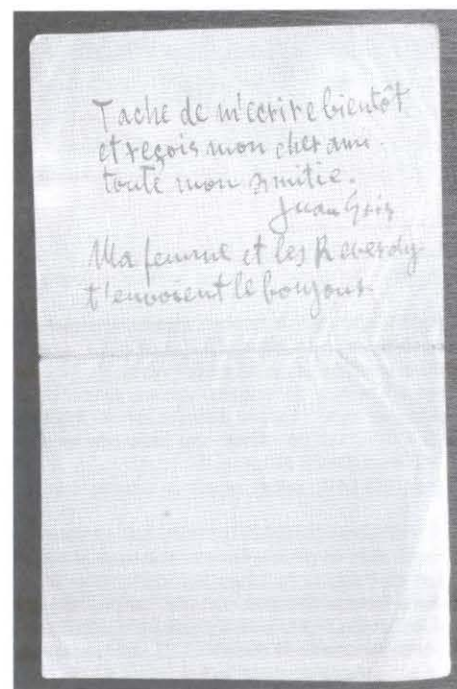 Tache de m'ecrire bientôt
et reçois mon cher ami.
toute mon amitie.
Juan Gris
Ma femme et les Reverdy
t'envoient le bonjour.